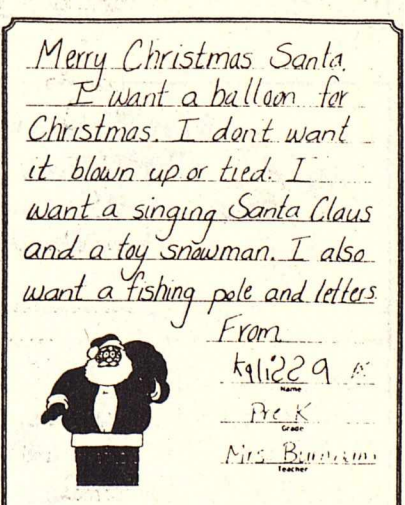 Merry Christmas Santa,
I want a balloon for
Christmas. I dont want
it blown up or tied. I
want a singing Santa Claus
and a toy snowman. I also
want a fishing pole and letters
From
Kalissa
Name
Pre K
Grade
Mrs
Teacher